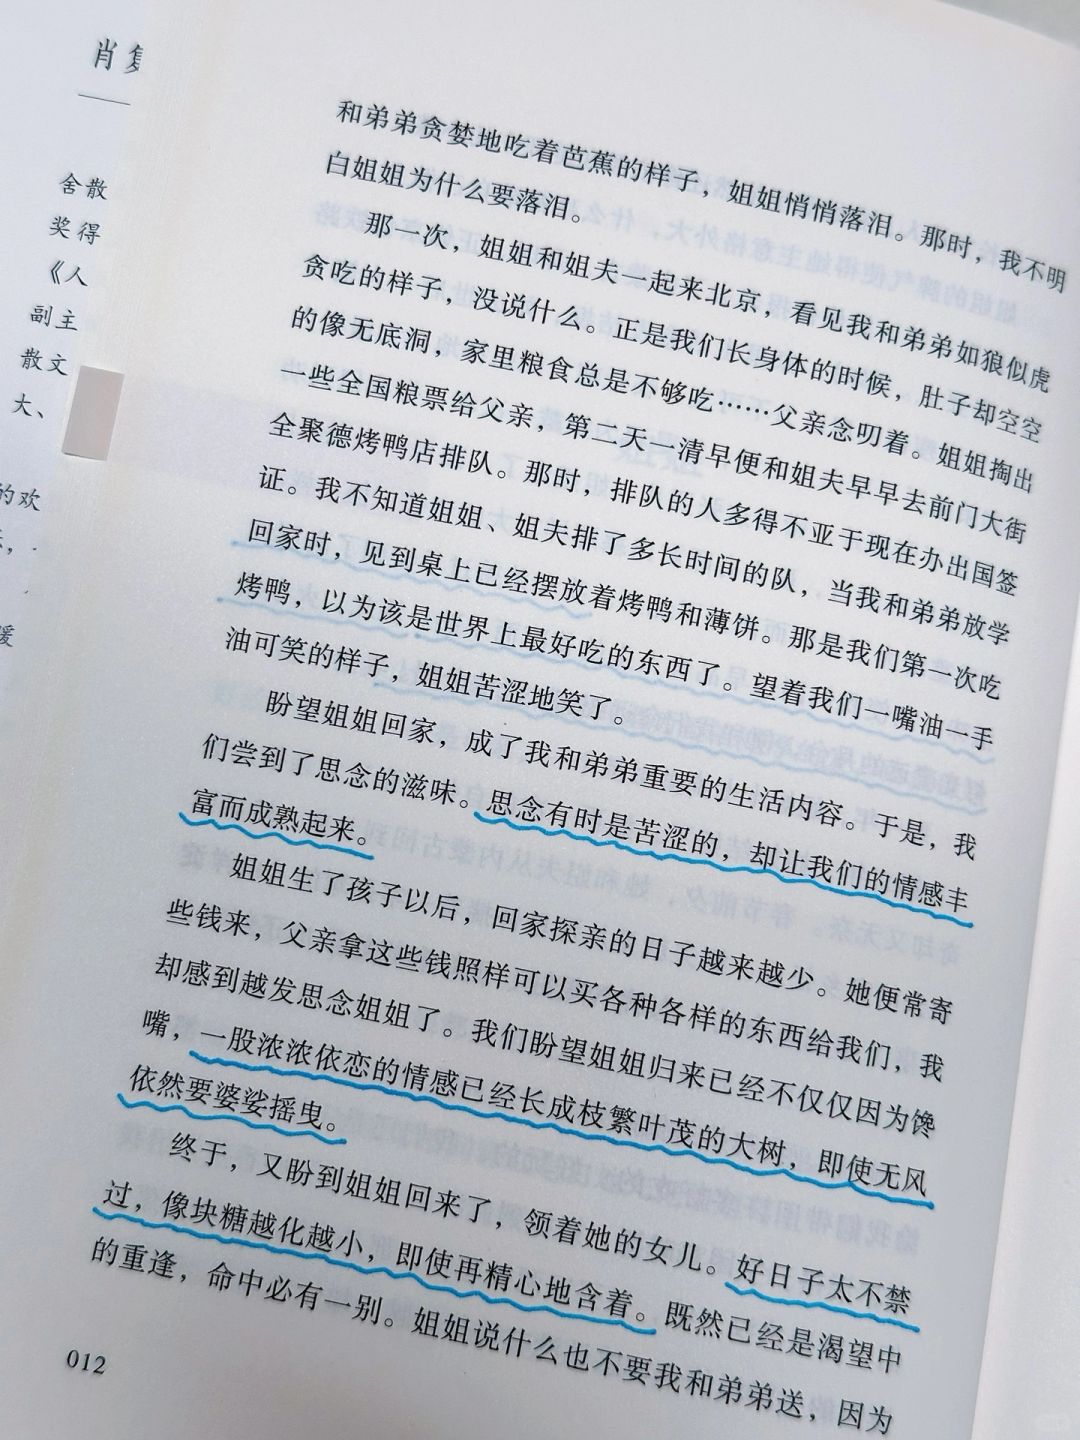 肖复
舍散
奖得
《人
副主
散文
大、
的欢
暖
和弟弟贪婪地吃着芭蕉的样子，姐姐悄悄落泪。那时，我不明
白姐姐为什么要落泪。
那一次，姐姐和姐夫一起来北京，看见我和弟弟如狼似虎
贪吃的样子，没说什么。正是我们长身体的时候，肚子却空空
的像无底洞，家里粮食总是不够吃……父亲念叨着。姐姐掏出
一些全国粮票给父亲，第二天一清早便和姐夫早早去前门大街
全聚德烤鸭店排队。那时，排队的人多得不亚于现在办出国签
证。我不知道姐姐、姐夫排了多长时间的队，当我和弟弟放学
回家时，见到桌上已经摆放着烤鸭和薄饼。那是我们第一次吃
烤鸭，以为该是世界上最好吃的东西了。望着我们一嘴油一手
油可笑的样子，姐姐苦涩地笑了。
盼望姐姐回家，成了我和弟弟重要的生活内容。于是，我
们尝到了思念的滋味。思念有时是苦涩的，却让我们的情感丰
富而成熟起来。
姐姐生了孩子以后，回家探亲的日子越来越少。她便常寄
些钱来，父亲拿这些钱照样可以买各种各样的东西给我们，我
却感到越发思念姐姐了。我们盼望姐姐归来已经不仅仅因为馋
嘴，一股浓浓依恋的情感已经长成枝繁叶茂的大树，即使无风
依然要婆娑摇曳。
终于，又盼到姐姐回来了，领着她的女儿。好日子太不禁
过，像块糖越化越小，即使再精心地含着。既然已经是渴望中
的重逢，命中必有一别。姐姐说什么也不要我和弟弟送，因为
012